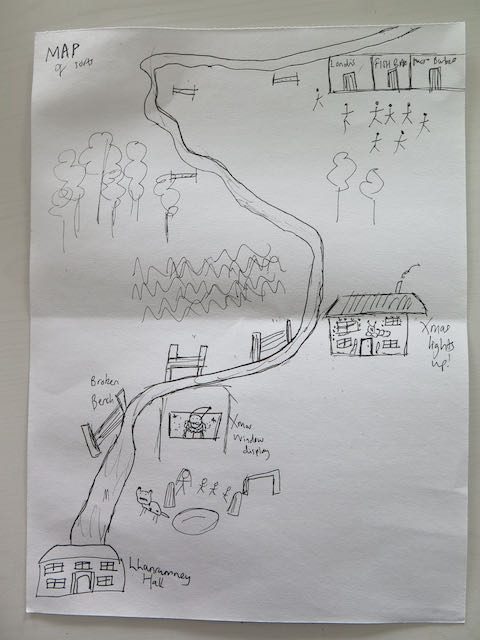 MAP
of sorts
Londis
FISH BAR
Broken
Bench
Xmas
lights
up!
Xmas
window
display
Llanrumney
Hall